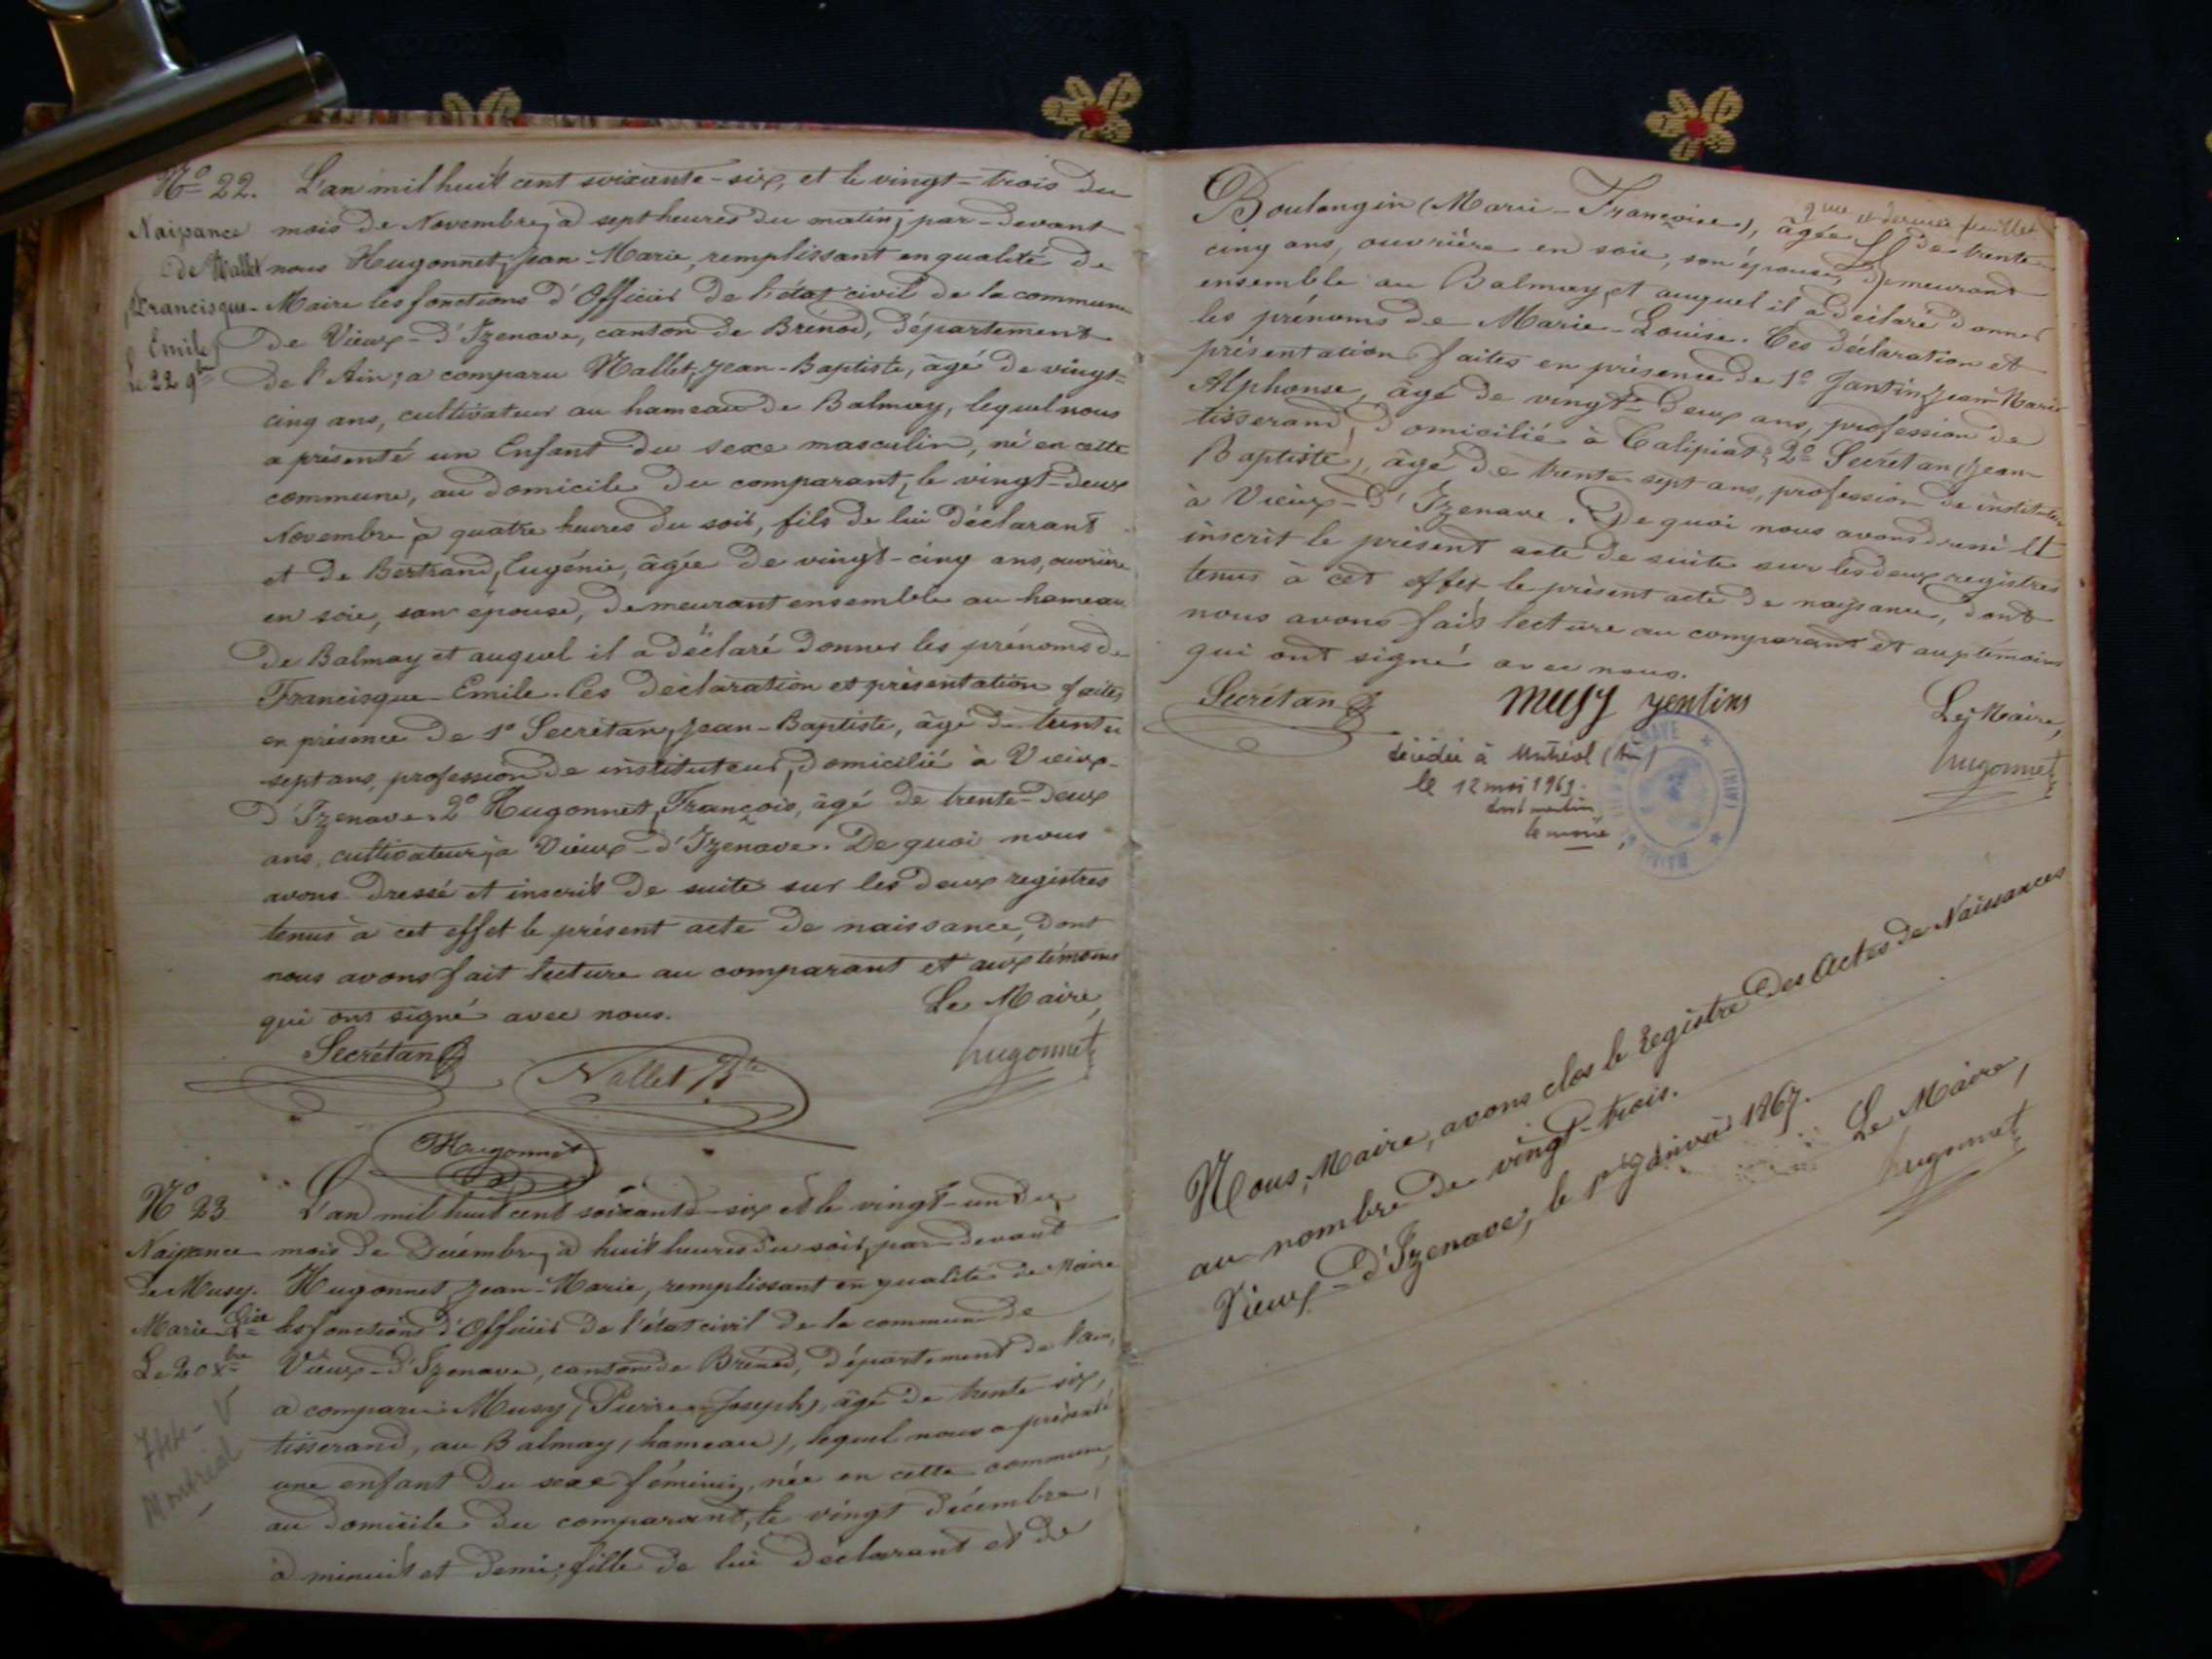 N° 22.
Naissance
de Nallet
Francisque-
Emile
Le 22 9bre
L'an mil huit cent soixante-six, et le vingt-trois du
mois de Novembre, à sept heures du matin, par-devant
nous Hugonnet, Jean-Marie, remplissant en qualité de
Maire les fonctions d'Officier de l'état civil de la commune
de Vieux-d'Izenave, canton de Brénod, département
de l'Ain, a comparu Nallet, Jean-Baptiste, âgé de vingt-
cinq ans, cultivateur au hameau de Balmay, lequel nous
a présenté un Enfant du sexe masculin, né en cette
commune, au domicile du comparant, le vingt-deux
Novembre à quatre heures du soir, fils de lui déclarant
et de Bertrand, Eugénie, âgée de vingt-cinq ans, ouvrière
en soie, son épouse, demeurant ensemble au hameau
de Balmay et auquel il a déclaré donner les prénoms de
Francisque-Emile. Ces déclaration et présentation faites
en présence de 1° Secrétan, Jean-Baptiste, âgé de trente
sept ans, profession de instituteur, domicilié à Vieux-
d'Izenave. 2° Hugonnet, François, âgé de trente-deux
ans, cultivateur, à Vieux-d'Izenave. De quoi nous
avons dressé et inscrit de suite sur les deux registres
tenus à cet effet le présent acte de naissance, dont
nous avons fait lecture au comparant et aux témoins
qui ont signé avec nous.
Le Maire,
Secrétan Nallet Bte hugonnet
Hugonnet
N° 23
Naissance
de Musy.
Marie Lise
Le 20 Xbre
Montréal
L'an mil huit cent soixante-six et le vingt-un du
mois de Décembre, à huit heures du soir, par-devant
Hugonnet Jean-Marie, remplissant en qualité de Maire
les fonctions d'Officier de l'état civil de la commune de
Vieux-d'Izenave, canton de Brénod, département de l'Ain,
a comparu Musy, (Pierre-Joseph), âgé de trente-six,
tisserand, au Balmay (hameau), lequel nous a présenté
une enfant du sexe féminin, née en cette commune,
au domicile du comparant, le vingt décembre,
à minuit et demi, fille de lui déclarant et de
9me et dernier feuillet
Boulongin (Marie-Françoise), âgée de trente
cinq ans, ouvrière en soie, son épouse, demeurant
ensemble au Balmay, et auquel il a déclaré donner
les prénoms de Marie-Louise. Ces déclaration et
présentation faites en présence de 1° Jantin, Jean-Marie
Alphonse, âgé de vingt-deux ans, profession de
tisserand, domicilié à 2° Secrétan (Jean-
Baptiste), âgé de trente sept ans, profession de instituteur
à Vieux-d'Izenave. De quoi nous avons dressé et
inscrit le présent acte de suite sur les deux registres
tenus à cet effet le présent acte de naissance, dont
nous avons fait lecture au comparant et aux témoins
qui ont signé avec nous.
Secrétan musy yentins Le Maire,
hugonnet
décédée à Montréal (Ain)
le 12 mai 1961.
dont mention
le maire,
Nous, Maire, avons clos le registre des Actes de Naissances
au nombre de vingt-trois.
Vieux-d'Izenave, le 1er Janvier 1867.
Le Maire,
hugonnet